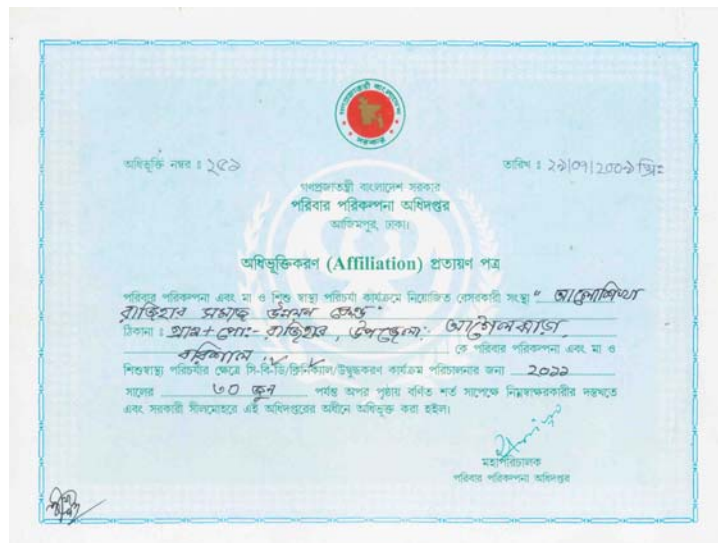 গণপ্রজাতন্ত্রী বাংলাদেশ সরকার
অধিভুক্তি নম্বর ঃ ২৫৯
তারিখ ঃ ২৯|০৭|২০০৯ খ্রিঃ
গণপ্রজাতন্ত্রী বাংলাদেশ সরকার
পরিবার পরিকল্পনা অধিদপ্তর
আজিমপুর, ঢাকা।
অধিভুক্তিকরণ (Affiliation) প্রত্যয়ণ পত্র
পরিবার পরিকল্পনা এবং মা ও শিশু স্বাস্থ্য পরিচর্যা কার্যক্রমে নিয়োজিত বেসরকারী সংস্থা " আলোশিখা
রাজিহার সমাজ উন্নয়ন কেন্দ্র"
ঠিকানা ঃ গ্রাম+পোঃ- রাজিহার, উপজেলা: আগৈলঝাড়া,
বরিশাল কে পরিবার পরিকল্পনা এবং মা ও
শিশুস্বাস্থ্য পরিচর্যার ক্ষেত্রে সি-বি-ডি/ক্লিনিক্যাল/উদ্বুদ্ধকরণ কার্যক্রম পরিচালনার জন্য ২০১১
সালের ৩০ জুন পর্যন্ত অপর পৃষ্ঠায় বর্ণিত শর্ত সাপেক্ষে নিম্নস্বাক্ষরকারীর দস্তখতে
এবং সরকারী সীলমোহরে এই অধিদপ্তরের অধীনে অধিভুক্ত করা হইল।
মহাপরিচালক
পরিবার পরিকল্পনা অধিদপ্তর